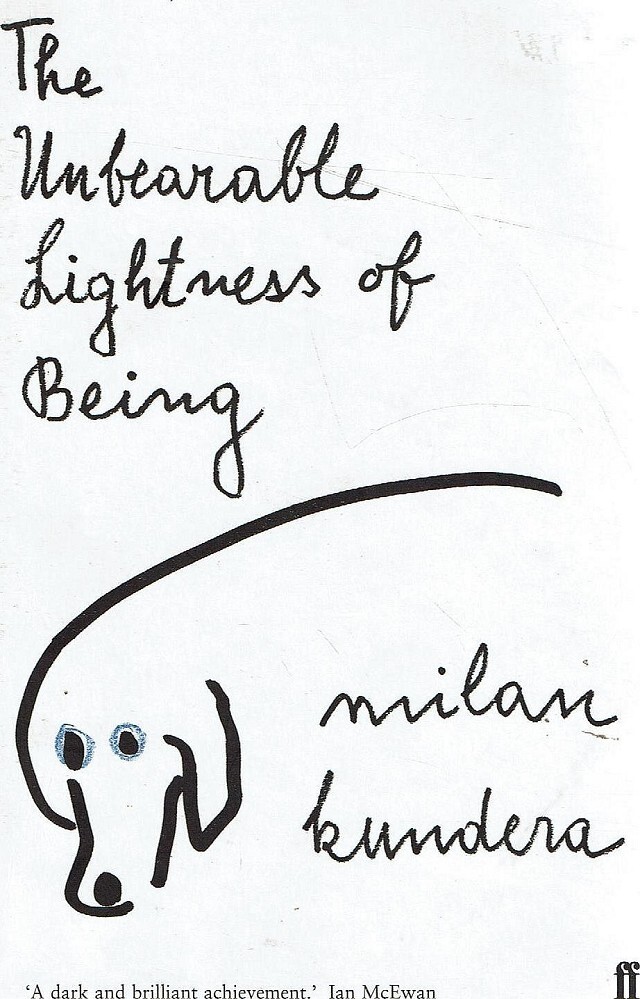 The
Unbearable
Lightness of
Being
milan
kundera
ff
'A dark and brilliant achievement.' Ian McEwan